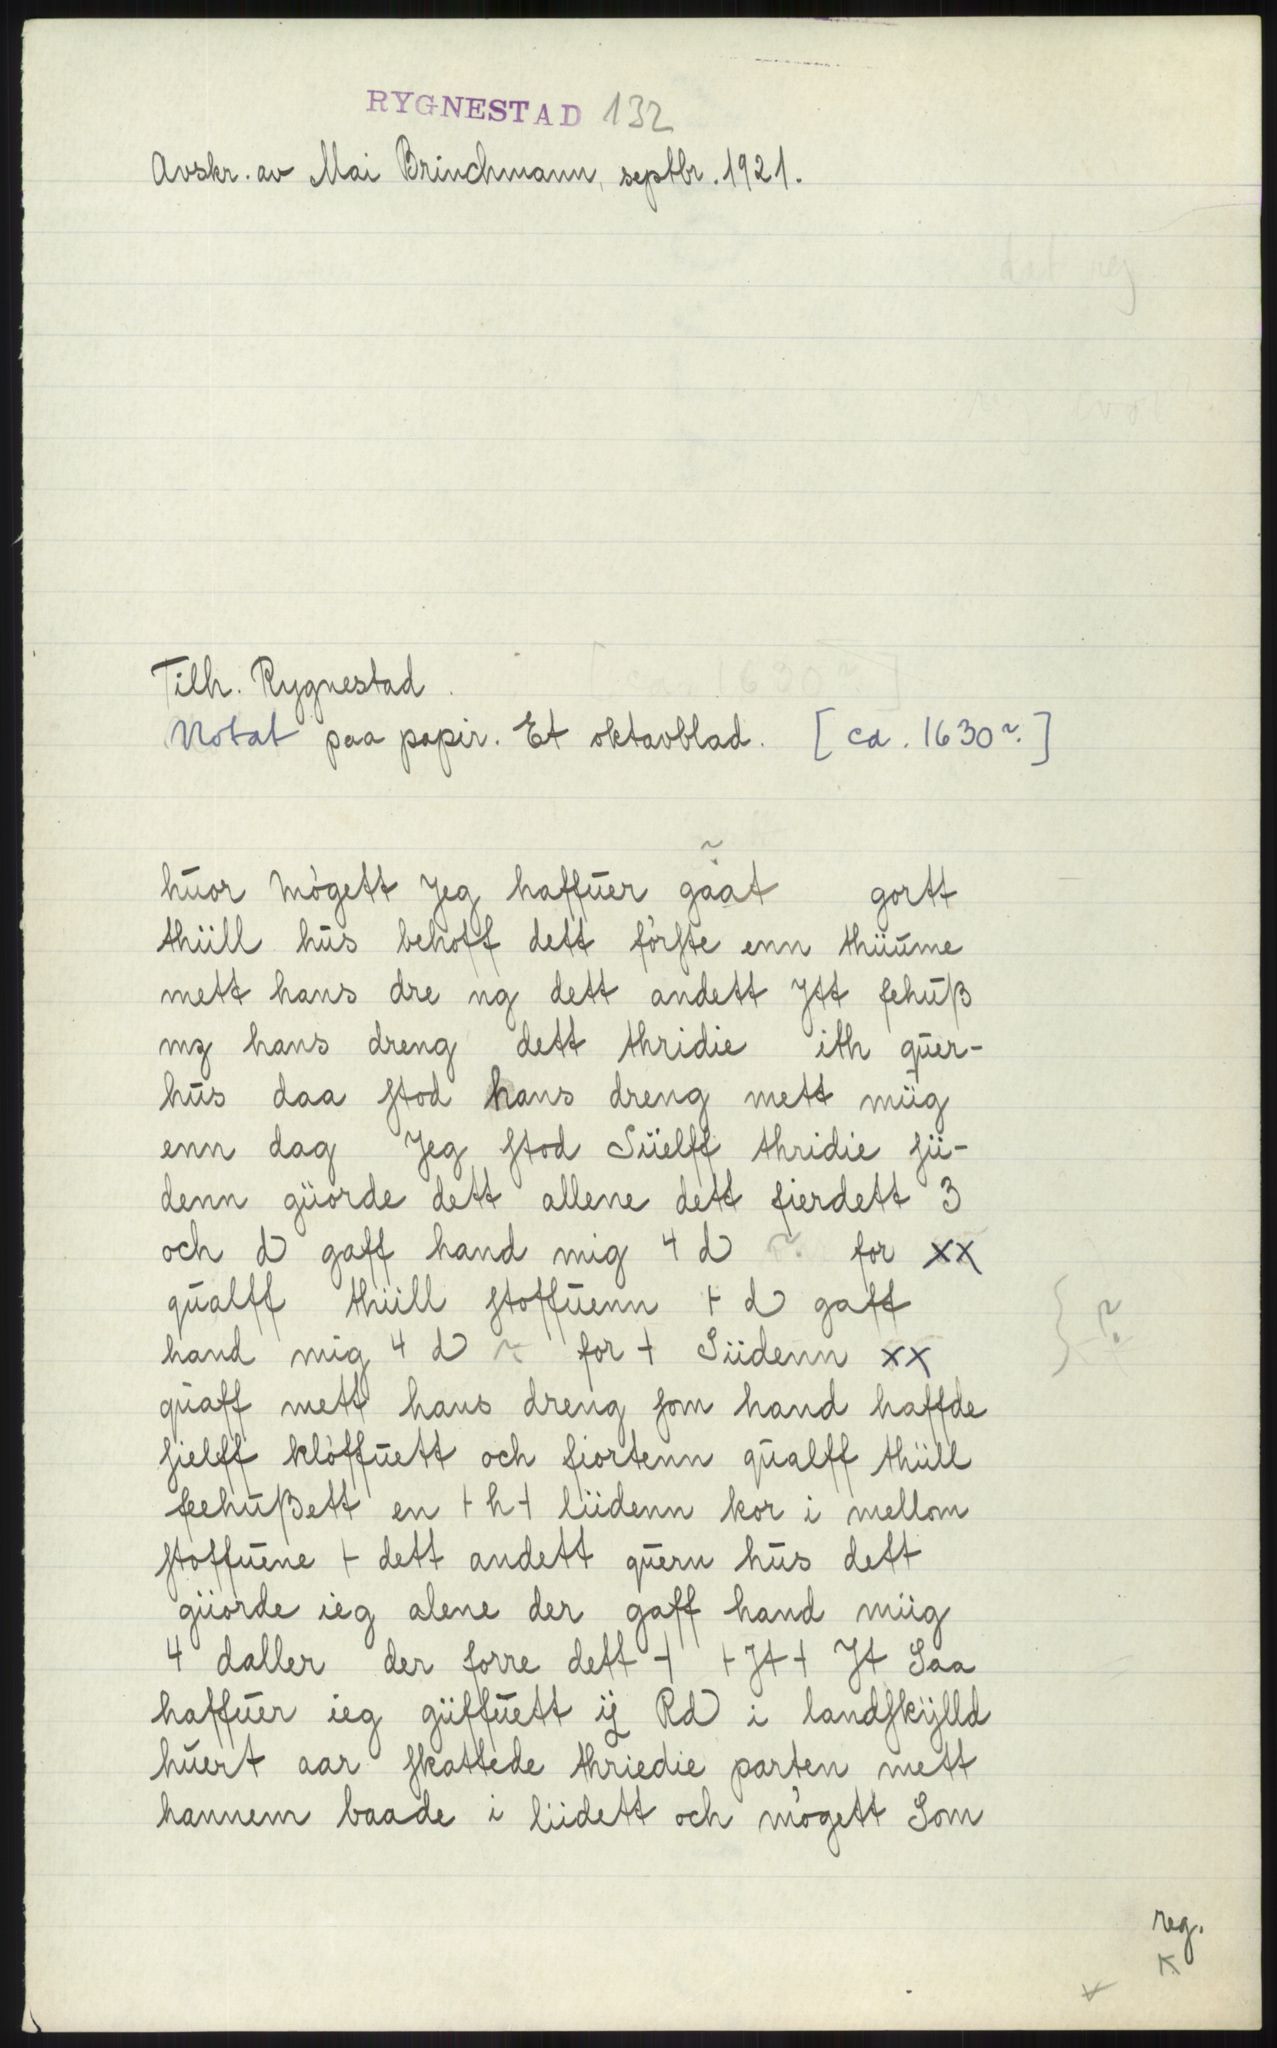 RYGNESTAD 132
Avskr. av Mai Brinchmann, septbr. 1921.
Tilh. Rygnestad.
Notat paa papir. Et oktavblad. [ca. 1630?]
hŭor mögett Jeg haffŭer gäat gortt
thiill hŭs behoff dett förste enn thüŭme
mett hans dre ng dett andett Jtt fehŭß
mz hans dreng dett thridie ith qŭer-
hŭs daa stod hans dreng mett miig
enn dag Jeg stod Siielff thridie sii-
denn giorde dett allene dett fierdett 3
och d gaff hand mig 4 d ? for xx
qŭalff thiill stoffŭenn + d gaff
hand mig 4 d ? for + Siidenn xx
qŭaff mett hans dreng som hand haffde
sielff klöffŭett och fiortenn qŭalff thiill
feehŭßett en + h + liidenn kor i mellom
stoffŭene + dett andett qŭern hŭs dett
giiorde ieg alene der gaff hand miig
4 daller der forre dett + + Jt + Jt Saa
haffŭer ieg giiffŭett ij Rd i landskÿlld
hŭert aar skattede thriedie parten mett
hannem baade i liidett och mögett Som
} ?
reg.